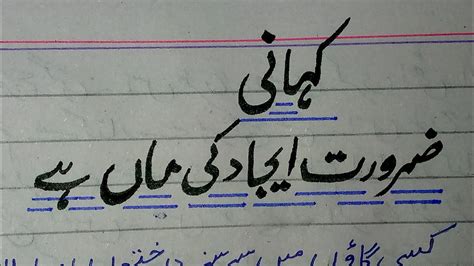 کہانی
ضرورت ایجاد کی ماں ہے
کسی گاؤں میں